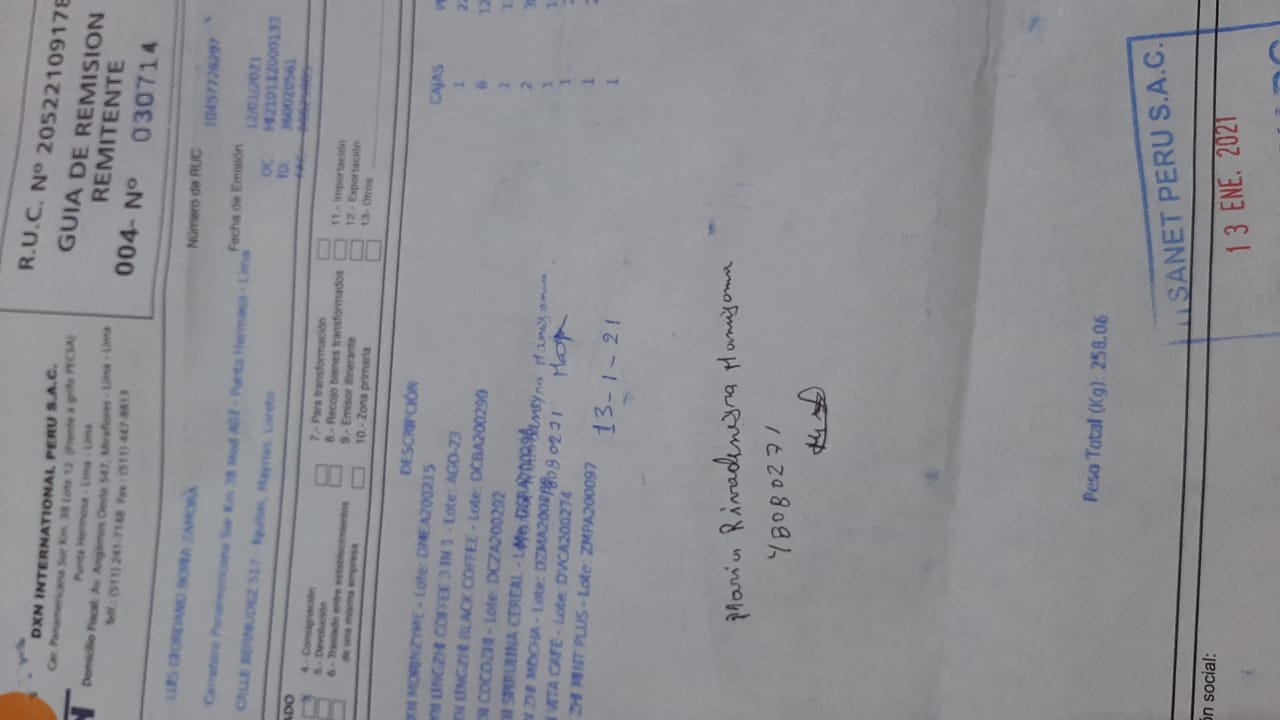 R.U.C. Nº 20522109178
GUIA DE REMISION
REMITENTE
004- Nº 030714
DXN INTERNATIONAL PERU S.A.C.
Car. Panamericana Sur Km. 38 Lote 12 (Frente a grifo PECSA)
Punta Hermosa - Lima - Lima
Domicilio Fiscal: Av. Angamos Oeste 547, Miraflores - Lima - Lima
Telf.: (511) 241-7148 Fax - (511) 447-8813
LUIS GEORDANO BORIA ZAMORA
Número de RUC 10457726297
Carretera Panamericana Sur Km 38 Mod A07 - Punta Hermosa - Lima
Fecha de Emisión 12/01/2021
CALLE BERMUDEZ 517 - Iquitos, Maynas, Loreto
OC
ID. 360020561
ADO
4.- Consignación
5.- Devolución
6.- Traslado entre establecimientos
de una misma empresa
7.- Para transformación
8.- Recojo bienes transformados
9.- Emisor itinerante
10.- Zona primaria
11.- Importación
12.- Exportación
13- Otros
DESCRIPCIÓN CAJAS
MORINZYME - Lote: DNEA200215 1
LINGZHI COFFEE 3 IN 1 - Lote: AGO-23 6
LINGZHI BLACK COFFEE - Lote: DCBA200290 1
COCOZHI - Lote: DCZA200202 2
SPIRULINA CEREAL 1
ZHI MOCHA - Lote: 1
VITA CAFE - Lote: DVCA200274 1
ZHI MINT PLUS - Lote: ZMPA200097 1
48080271
13-1-21
Maria Rivadeneyra Manizama
48080271
Peso Total (Kg): 258.06
SANET PERU S.A.C.
13 ENE. 2021
ón social: